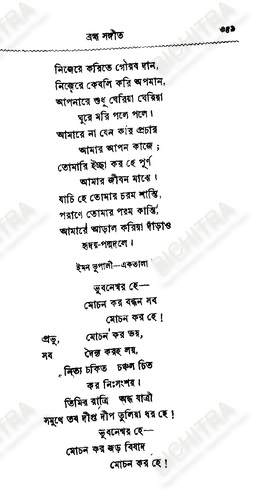 ব্রহ্ম সঙ্গীত ৩৪৯
নিজেরে করিতে গৌরব দান,
নিজেরে কেবলি করি অপমান,
আপনারে শুধু ঘেরিয়া ঘেরিয়া
ঘুরে মরি পলে পলে।
আমারে না যেন করি প্রচার
আমার আপন কাজে;
তোমারি ইচ্ছা কর হে পূর্ণ
আমার জীবন মাঝে।
যাচি হে তোমার চরম শান্তি,
পরাণে তোমার পরম কান্তি,
আমারে আড়াল করিয়া দাঁড়াও
হৃদয়-পদ্মদলে।
ইমন ভূপালী—একতালা
ভুবনেশ্বর হে—
মোচন কর বন্ধন সব
মোচন কর হে!
প্রভু, মোচন কর ভয়,
সব দৈন্য করহ লয়,
নিত্য চকিত চঞ্চল চিত
কর নিঃসংশয়।
তিমির রাত্রি অন্ধ যাত্রী
সমুখে তব দীপ্ত দীপ তুলিয়া ধর হে!
ভুবনেশ্বর হে—
মোচন কর জড় বিষাদ
মোচন কর হে!
BICHITRA